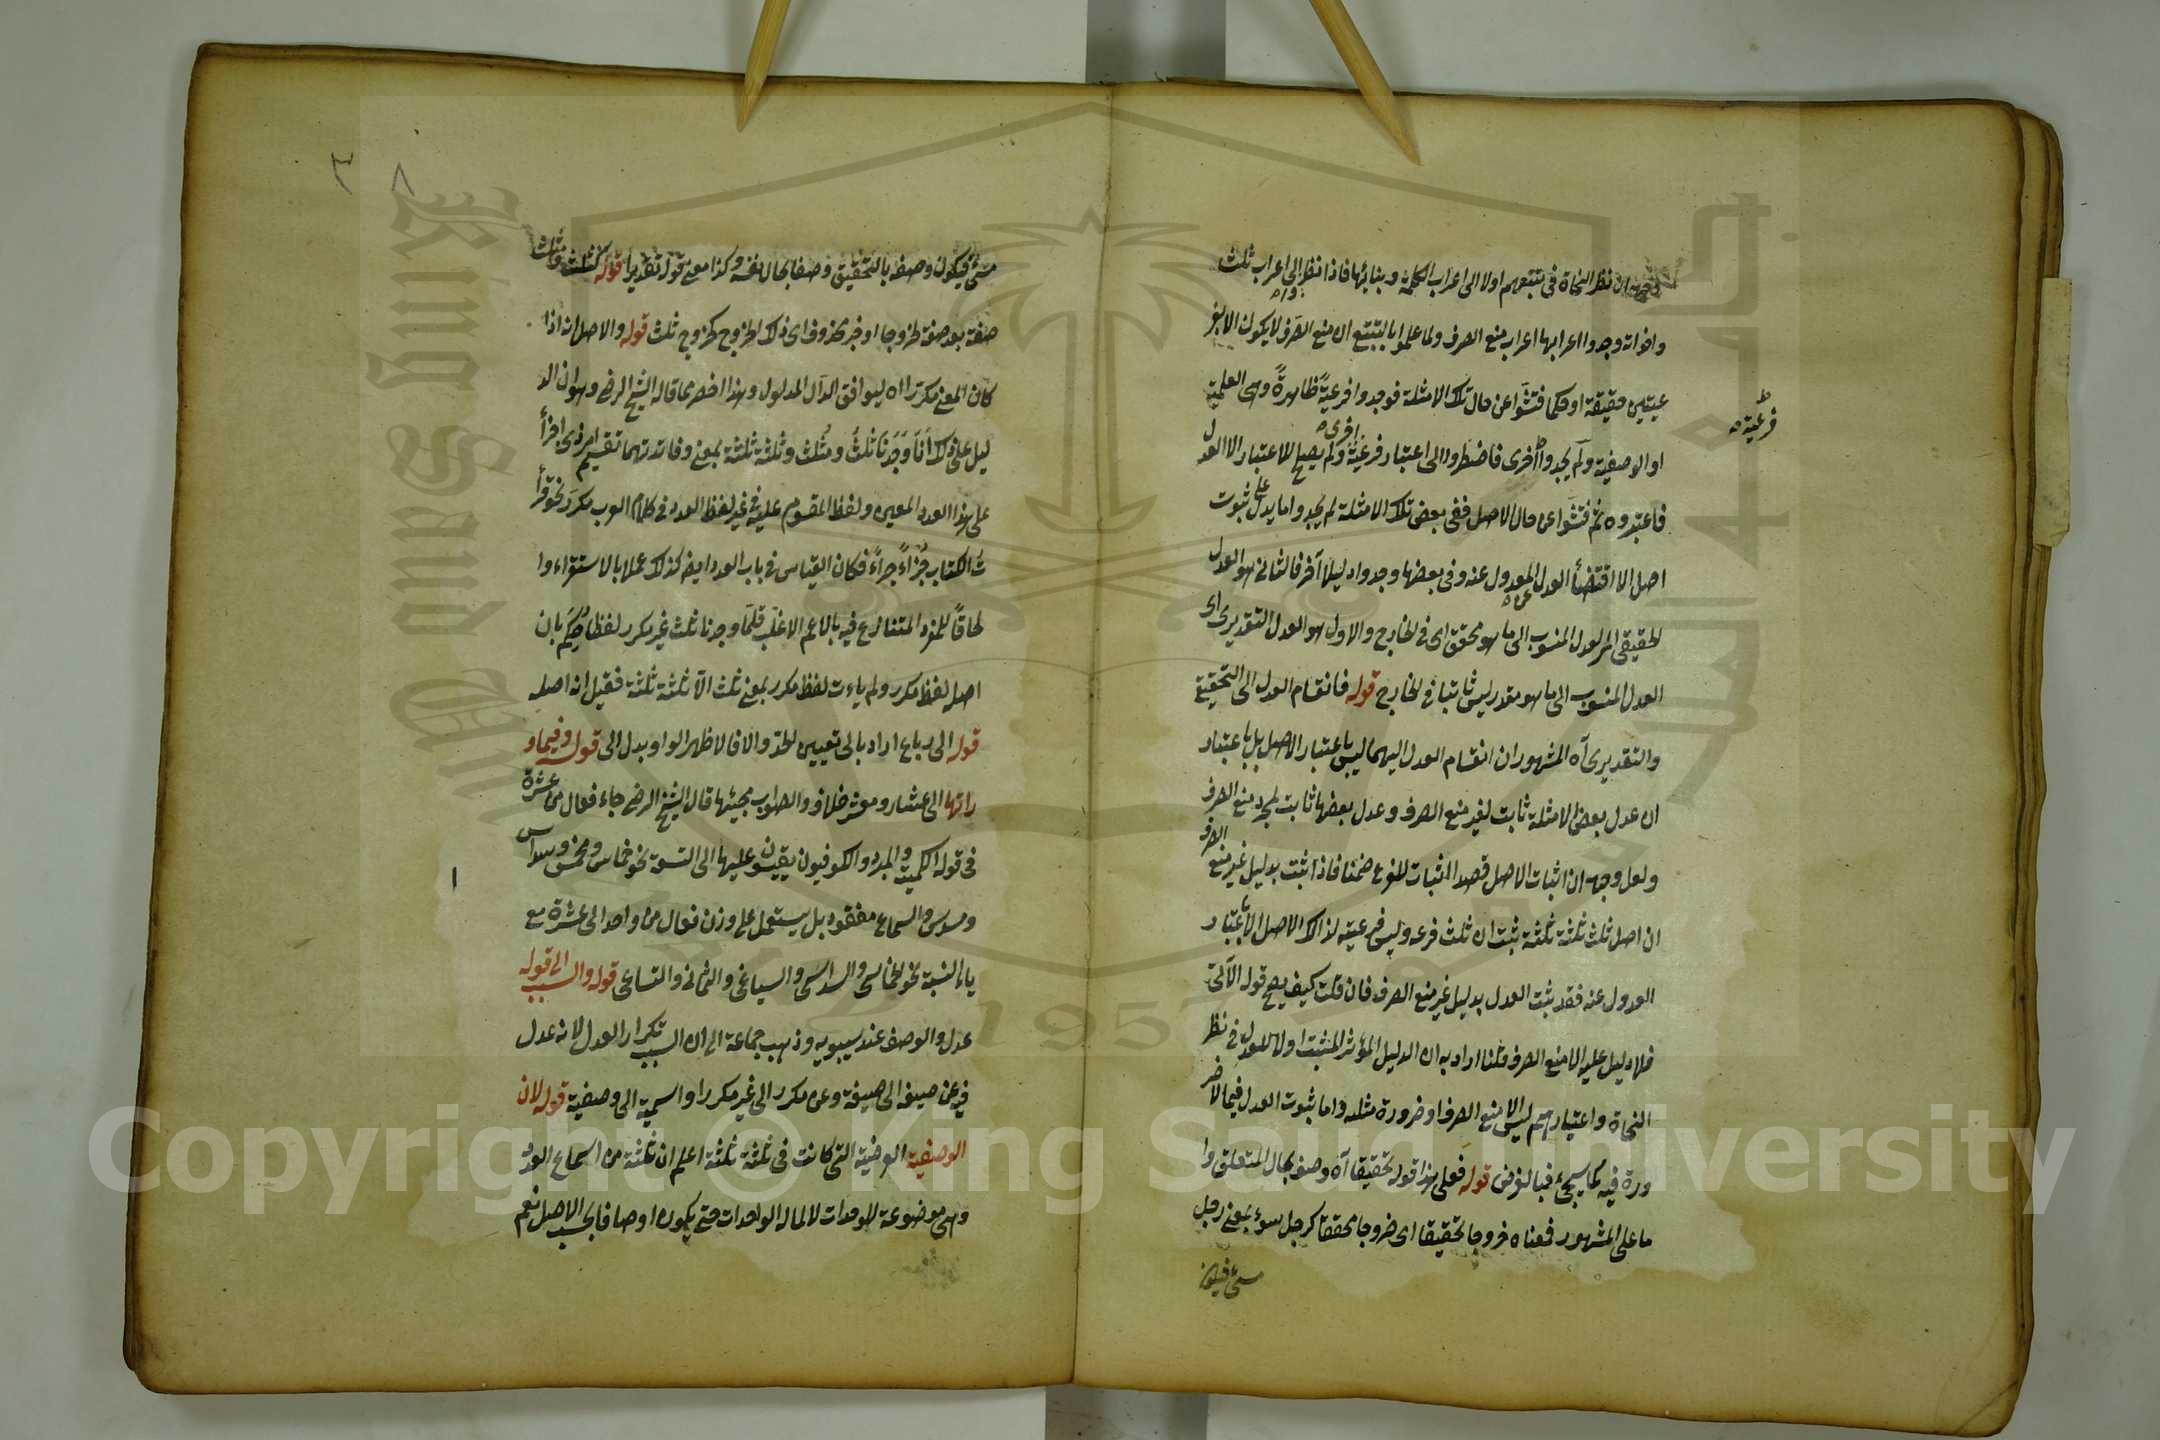 وجهه ان نظر النحاة في تتبعهم اولا الى اعراب الكلمة وبنائها فاذا نظر الى اعراب ثلث
واخواته وجدوا اعرابها اعراب منع الصرف ولما علموا بالتتبع ان منع الصرف لا يكون الا بفر
عيتين حقيقة او حكما فتشوا عن حال تلك الامثلة فوجدوا فرعية ظاهرة وهي العلمية
او الوصفية ولم يجدوا اخرى فاضطروا الى اعتبار فرعية اخرى ولم يصلح للاعتبار الا العدل
فاعتبروه ثم فتشوا عن حال الاصل ففي بعض تلك الامثلة لم يجدوا ما يدل على ثبوت
اصل الا اقتضأ العدل المعدول عنه وفي بعضها وجدوا دليلا آخر فالثاني هو العدل
الحقيقي العدل المنسوب الى ما هو محقق اى في الخارج والاول هو العدل التقديرى اى
العدل المنسوب الى ما هو مقدر ليس ثابتا في الخارج قوله فانقسام العدل الى التحقيق
والتقديرى آه المشهور ان انقسام العدل اليهما ليس باعتبار الاصل بل باعتبار
ان عدل بعض الامثلة ثابت لغير منع الصرف وعدل بعضها ثابت لمجرد منع الصرف
ولعل وجهه ان اثبات الاصل قصدا اثبات للفرع ضمنا فاذا ثبت بدليل غير منع الصرف
ان اصل ثلث ثلثة ثلثة ثبت ان ثلث فرعه وليس فرعيته لذاك الاصل الا باعتبار
العدول عنه فقد ثبت العدل بدليل غير منع الصرف فان قلت كيف يصح قوله الآتى
فلا دليل عليه الا منع الصرف قلنا اراد به ان الدليل المؤثر المثبت اولا للعدل في نظر
النحاة واعتبارهم ليس الا منع الصرف او ضرورة مثله واما ثبوت العدل فيما لا ضر
ورة فيه كما سيجئ فبالفرض قوله فعلى هذا قوله تحقيقا آه وصف بحال المتعلق وا
ما على المشهور فمعناه خروجا تحقيقا اى خروجا محققا كرجل سوء بمعنى رجل
سئ فيكون
فرعية صح
سئ فيكون وصف بالتحقيق وصفا بحال نفسه وكذا معنى قوله تقديرا قوله كثلث ومثلث
صفة بعد صفة لخروجا او خبر محذوف اى ذلك الخروج كخروج ثلث قوله والاصل انه اذا
كان المعنى مكررا اه ليوافق الدال المدلول وهذا اخصر مما قاله الشيخ الرضى وهو ان الد
ليل على ذلك انا وجدنا ثلث ومثلث وثلثة ثلثة بمعنى وفائدتهما تقسيم امر ذى اجزأ
على هذا العدد المعين ولفظ المقسوم عليه في غير لفظ العدد في كلام العرب مكرر نحو قرأ
ت الكتاب جزاء جزاء فكان القياس في باب العدد ايضا كذلك عملا بالاستقراء وا
لحاقا للفرد المتنازع فيه بالاعم الاغلب فلما وجدنا ثلث غير مكرر لفظا حكم بان
اصله لفظ مكرر ولم يأت لفظ مكرر بمعنى ثلث الا ثلثة ثلثة فقيل انه اصله
قوله الى رباع اراد بالى تعيين الحد والا فالاظهر الواو بدل الى قوله وفيما و
رائها الى عشار ومعشر خلاف والصواب مجيئها قال الشيخ الرضى جاء فعال من عشرة
في قول الكميت والمبرد والكوفيون يقيسون عليها الى التسعة نحو خماس ومخمس وسداس
ومسدس والسماع مفقود بل يستعمل على وزن فعال من واحد الى عشرة مع
ياء النسبة نحو الخماسى والسداسى والسباعى والثمانى والتساعى قوله والسبب الى قوله
عدل والوصف عند سيبويه وذهب جماعة الى ان السبب تكرار العدل لانه عدل
فيه عن صيغة الى صيغة وعن مكرر الى غير مكرر او اسمية الى وصفية قوله لان
الوصفية العرضية التى كانت فى ثلثة ثلثة اعلم ان ثلثة من اسماء العدد
وهى موضوعة للوحدات لا لما له الوحدات حتى يكون اوصافا بحسب الاصل نعم
٣ ٨
Copyright © King Saud University
King Saud University
1957